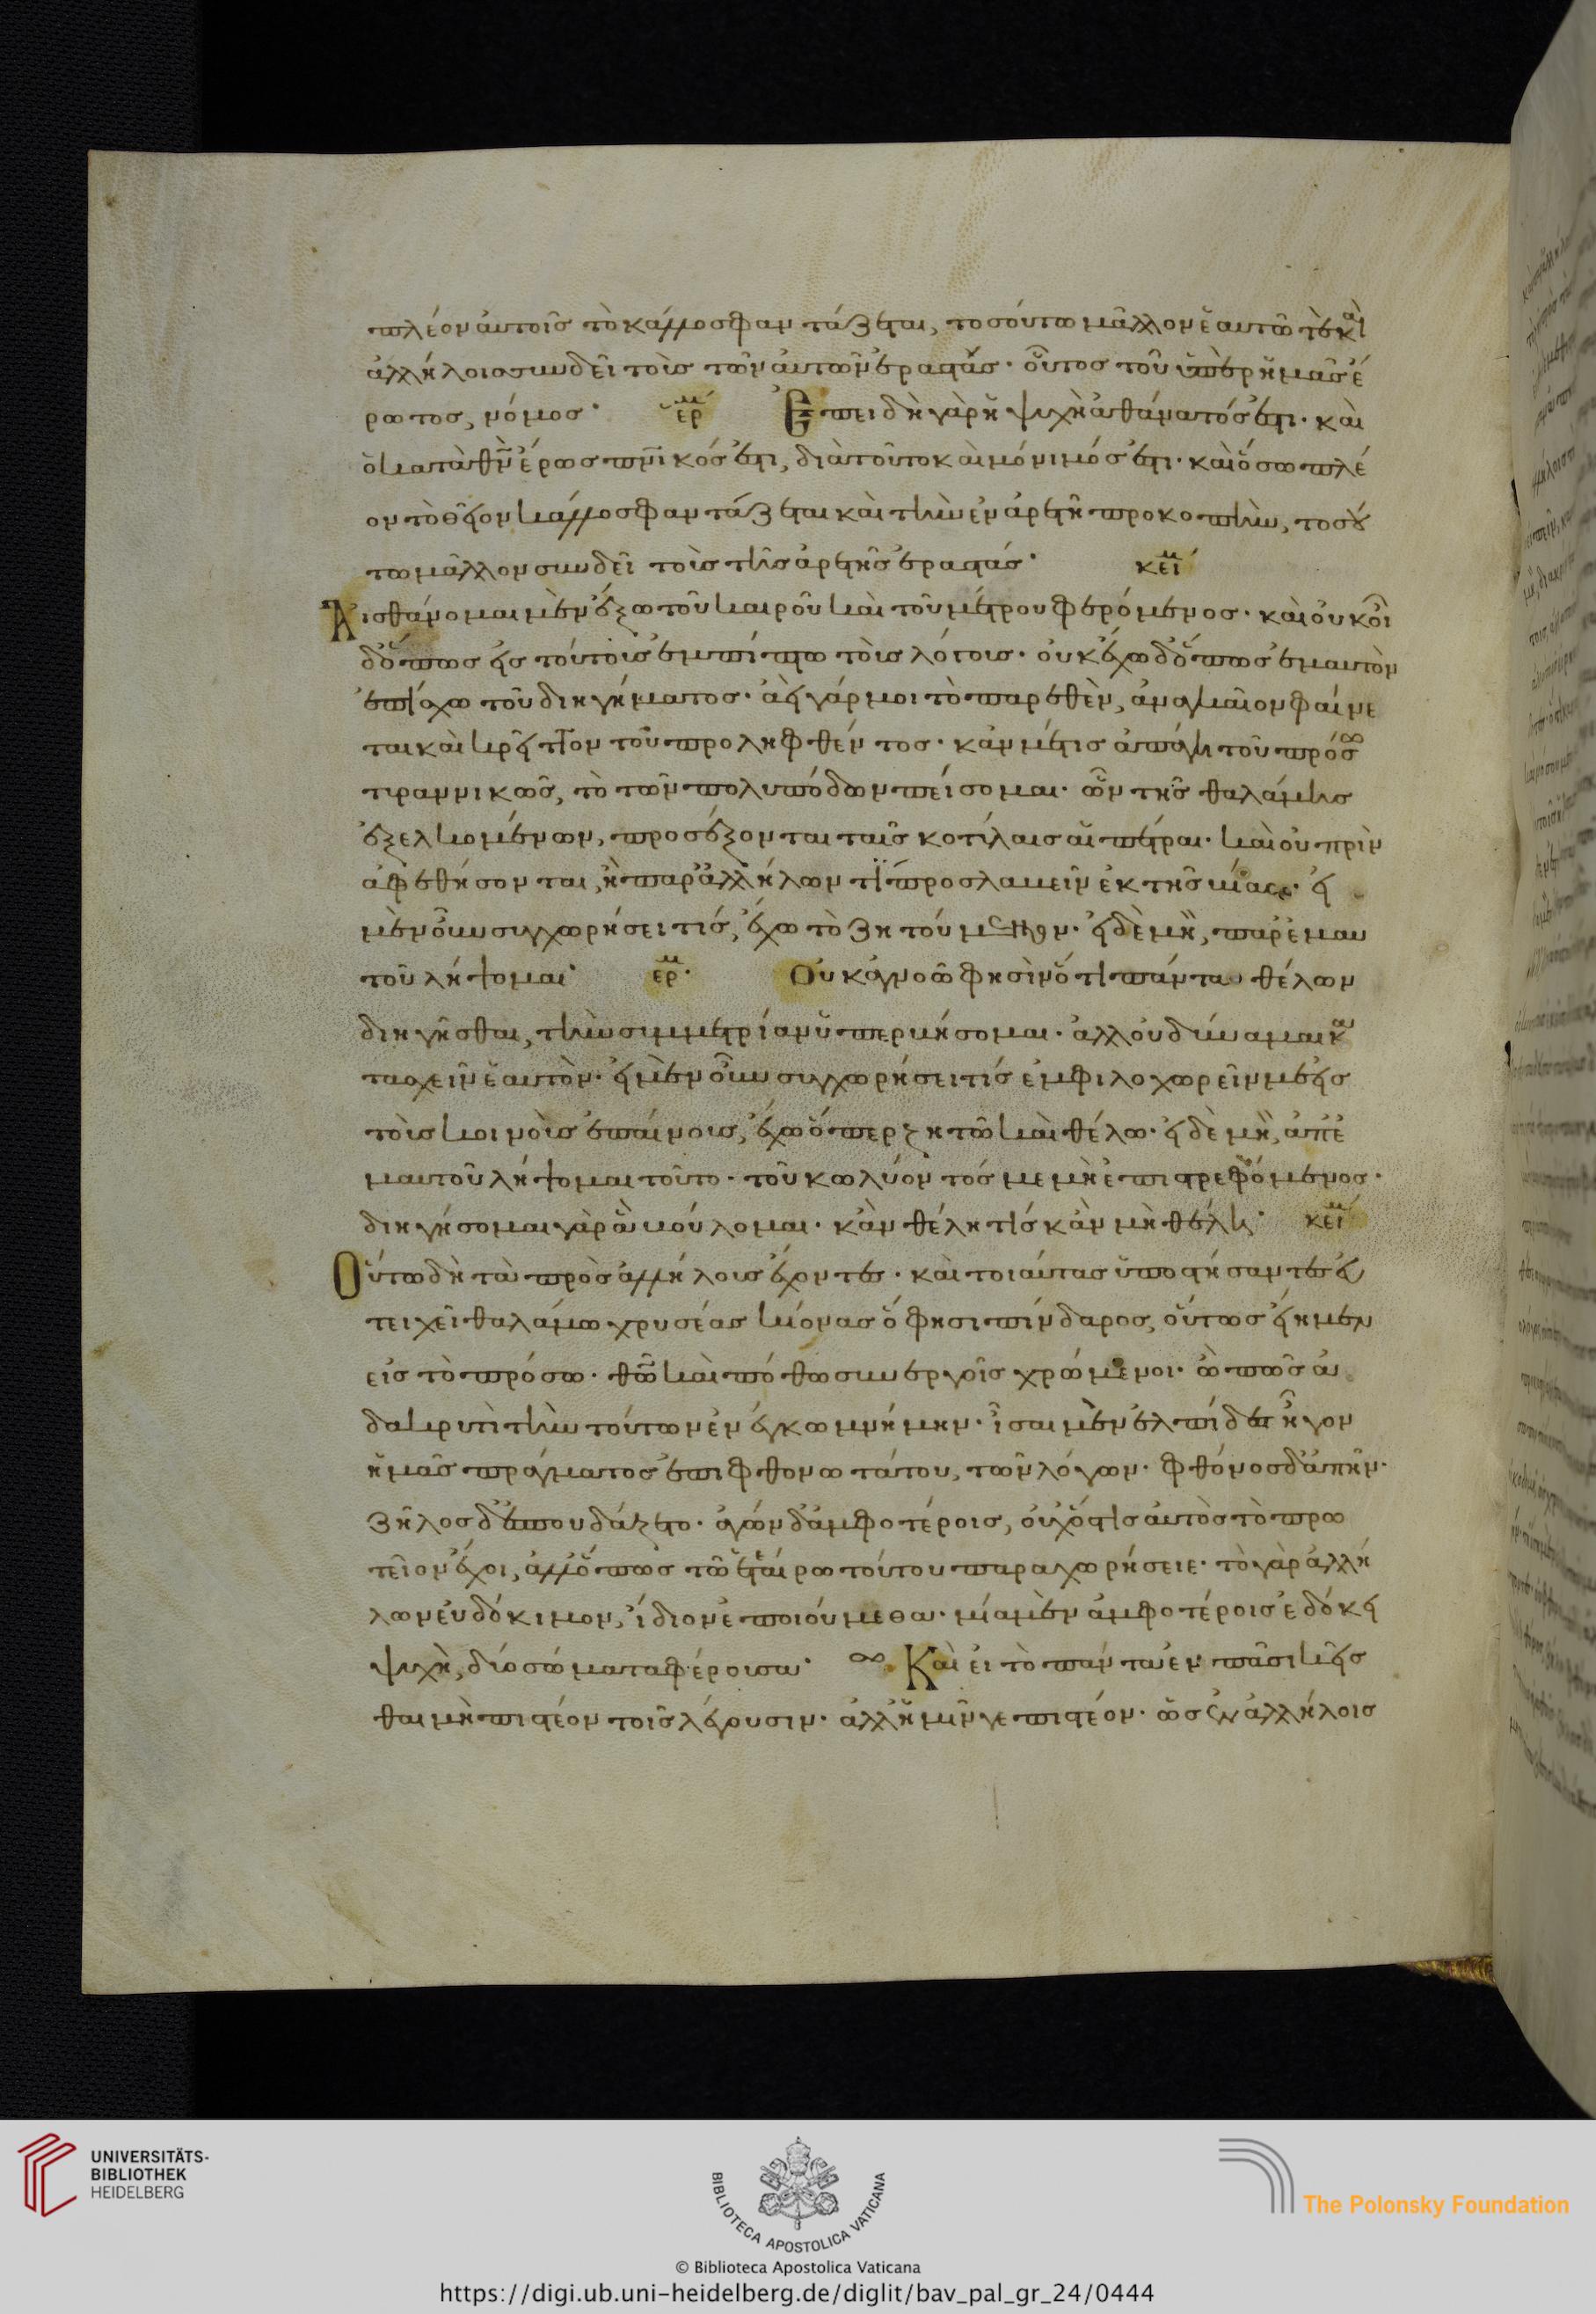 πλέον αὐτοῖς τὸ κάλλος φαντάζεται, τοσούτω μᾶλλον ἑαυτῶ τὲ καὶ
ἀλλήλοις συνδεῖ τοὺς τῶν αὐτῶν ἐραστάς· οὗτος τοῦ ὑπὲρ ἡμᾶς ἔ
ρωτος, νόμος· ἑρμ Ἐπειδὴ γὰρ ἡ ψυχὴ ἀθάνατός ἐστι· καὶ
ὁ κατὰ θν̅ ἔρως πνικός ἐστι, διὰ τοῦτο καὶ μόνιμός ἐστι· καὶ ὅσω πλέ
ον τὸ θεῖον κάλλος φαντάζεται καὶ τὴν ἐν ἀρετῆ προκοπὴν, τοσού
τω μᾶλλον συνδεῖ τοὺς τῆς ἀρετῆς ἐραστάς· κείμ
Αἰσθάνομαι μὲν ἔξω τοῦ καιροῦ καὶ τοῦ μέτρου φερόμενος· καὶ οὐκ οἶ
δ' ὅπως εἰς τούτους ἐμπίπτω τοὺς λόγους· οὐκ ἔχω δ' ὅπως ἐμαυτὸν
ἐπίσχω τοῦ διηγήματος· ἀεὶ γάρ μοι τὸ παρεθὲν, ἀναγκαῖον φαίνε
ται καὶ κρεῖττον τοῦ προληφθέντος· κἄν με τις ἀπάγη τοῦ πρόσω
τυραννικῶς, τὸ τῶν πολυπόδων πείσομαι· ὧν τῆς θαλάμης
ἐξελκομένων, προσέξονται ταῖς κοτύλαις αἱ πέτραι· καὶ οὐ πρὶν
ἀφεθήσονται, ἢ παρ' ἀλλήλων τὶ προσλαβεῖν ἐκ τῆς βίας· εἰ
μὲν οὖν συγχωρήσει τίς, ἔχω τὸ ζητούμενον· εἰ δὲ μὴ, παρ' ἐμαυ
τοῦ λήψομαι· ἑρμ· Οὐκ ἀγνοῶ φησὶν ὅτι πάντα θέλων
διηγεῖσθαι, τὴν συμμετρίαν ὑπερβήσομαι· ἀλλ' οὐ δύναμαι κα
τασχεῖν ἑαυτὸν· εἰ μὲν οὖν συγχωρήσει τίς ἐμφιλοχωρεῖν με εἰς
τοὺς κοινοὺς ἐπαίνους, ἔχω ὅπερ ζητῶ καὶ θέλω· εἰ δὲ μὴ, ἀπ' ἐ
μαυτοῦ λήψομαι τοῦτο· τοῦ κωλύοντός με μὴ ἐπιστρεφόμενος·
διηγήσομαι γὰρ ἃ βούλομαι· κἂν θέλη τίς κἂν μὴ θέλη· κείμ
Οὕτω δὴ τὰ πρὸς ἀλλήλους ἔχοντες· καὶ τοιαύτας ὑποστήσαντες εὐ
τειχεῖ θαλάμω χρυσέας κίονας ὅ φησι πίνδαρος, οὕτως ἤειμεν
εἰς τὸ πρόσω· θῶ̅ καὶ πόθω συνεργοῖς χρώμενοι· ὢ πῶς ἀ
δακρυτὶ τὴν τούτων ἐνέγκω μνήμην· ἴσαι μὲν ἐλπίδες ἦγον
ἡμᾶς πράγματος ἐπιφθονωτάτου, τῶν λόγων· φθόνος δ' ἀπῆν·
ζῆλος δ' ἐσπουδάζετο· ἀγὼν δ' ἀμφοτέροις, οὐχ ὅστις αὐτὸς τὸ πρω
τεῖον ἔχοι, ἀλλ' ὅπως τῶ ἑταίρω τούτου παραχωρήσειε· τὸ γὰρ ἀλλή
λων εὐδόκιμον, ἴδιον ἐποιούμεθα· μία μὲν ἀμφοτέροις ἐδόκει
ψυχὴ, δύο σώματα φέρουσα· Καὶ εἰ τὸ πάντα ἐν πᾶσι κεῖσ
θαι μὴ πιστέον τοῖς λέγουσιν· ἀλλ' ἡμῖν γε πιστέον· ὡς ἐν ἀλλήλοις
UNIVERSITÄTS-
BIBLIOTHEK
HEIDELBERG
BIBLIOTECA APOSTOLICA VATICANA
The Polonsky Foundation
© Biblioteca Apostolica Vaticana
https://digi.ub.uni-heidelberg.de/diglit/bav_pal_gr_24/0444